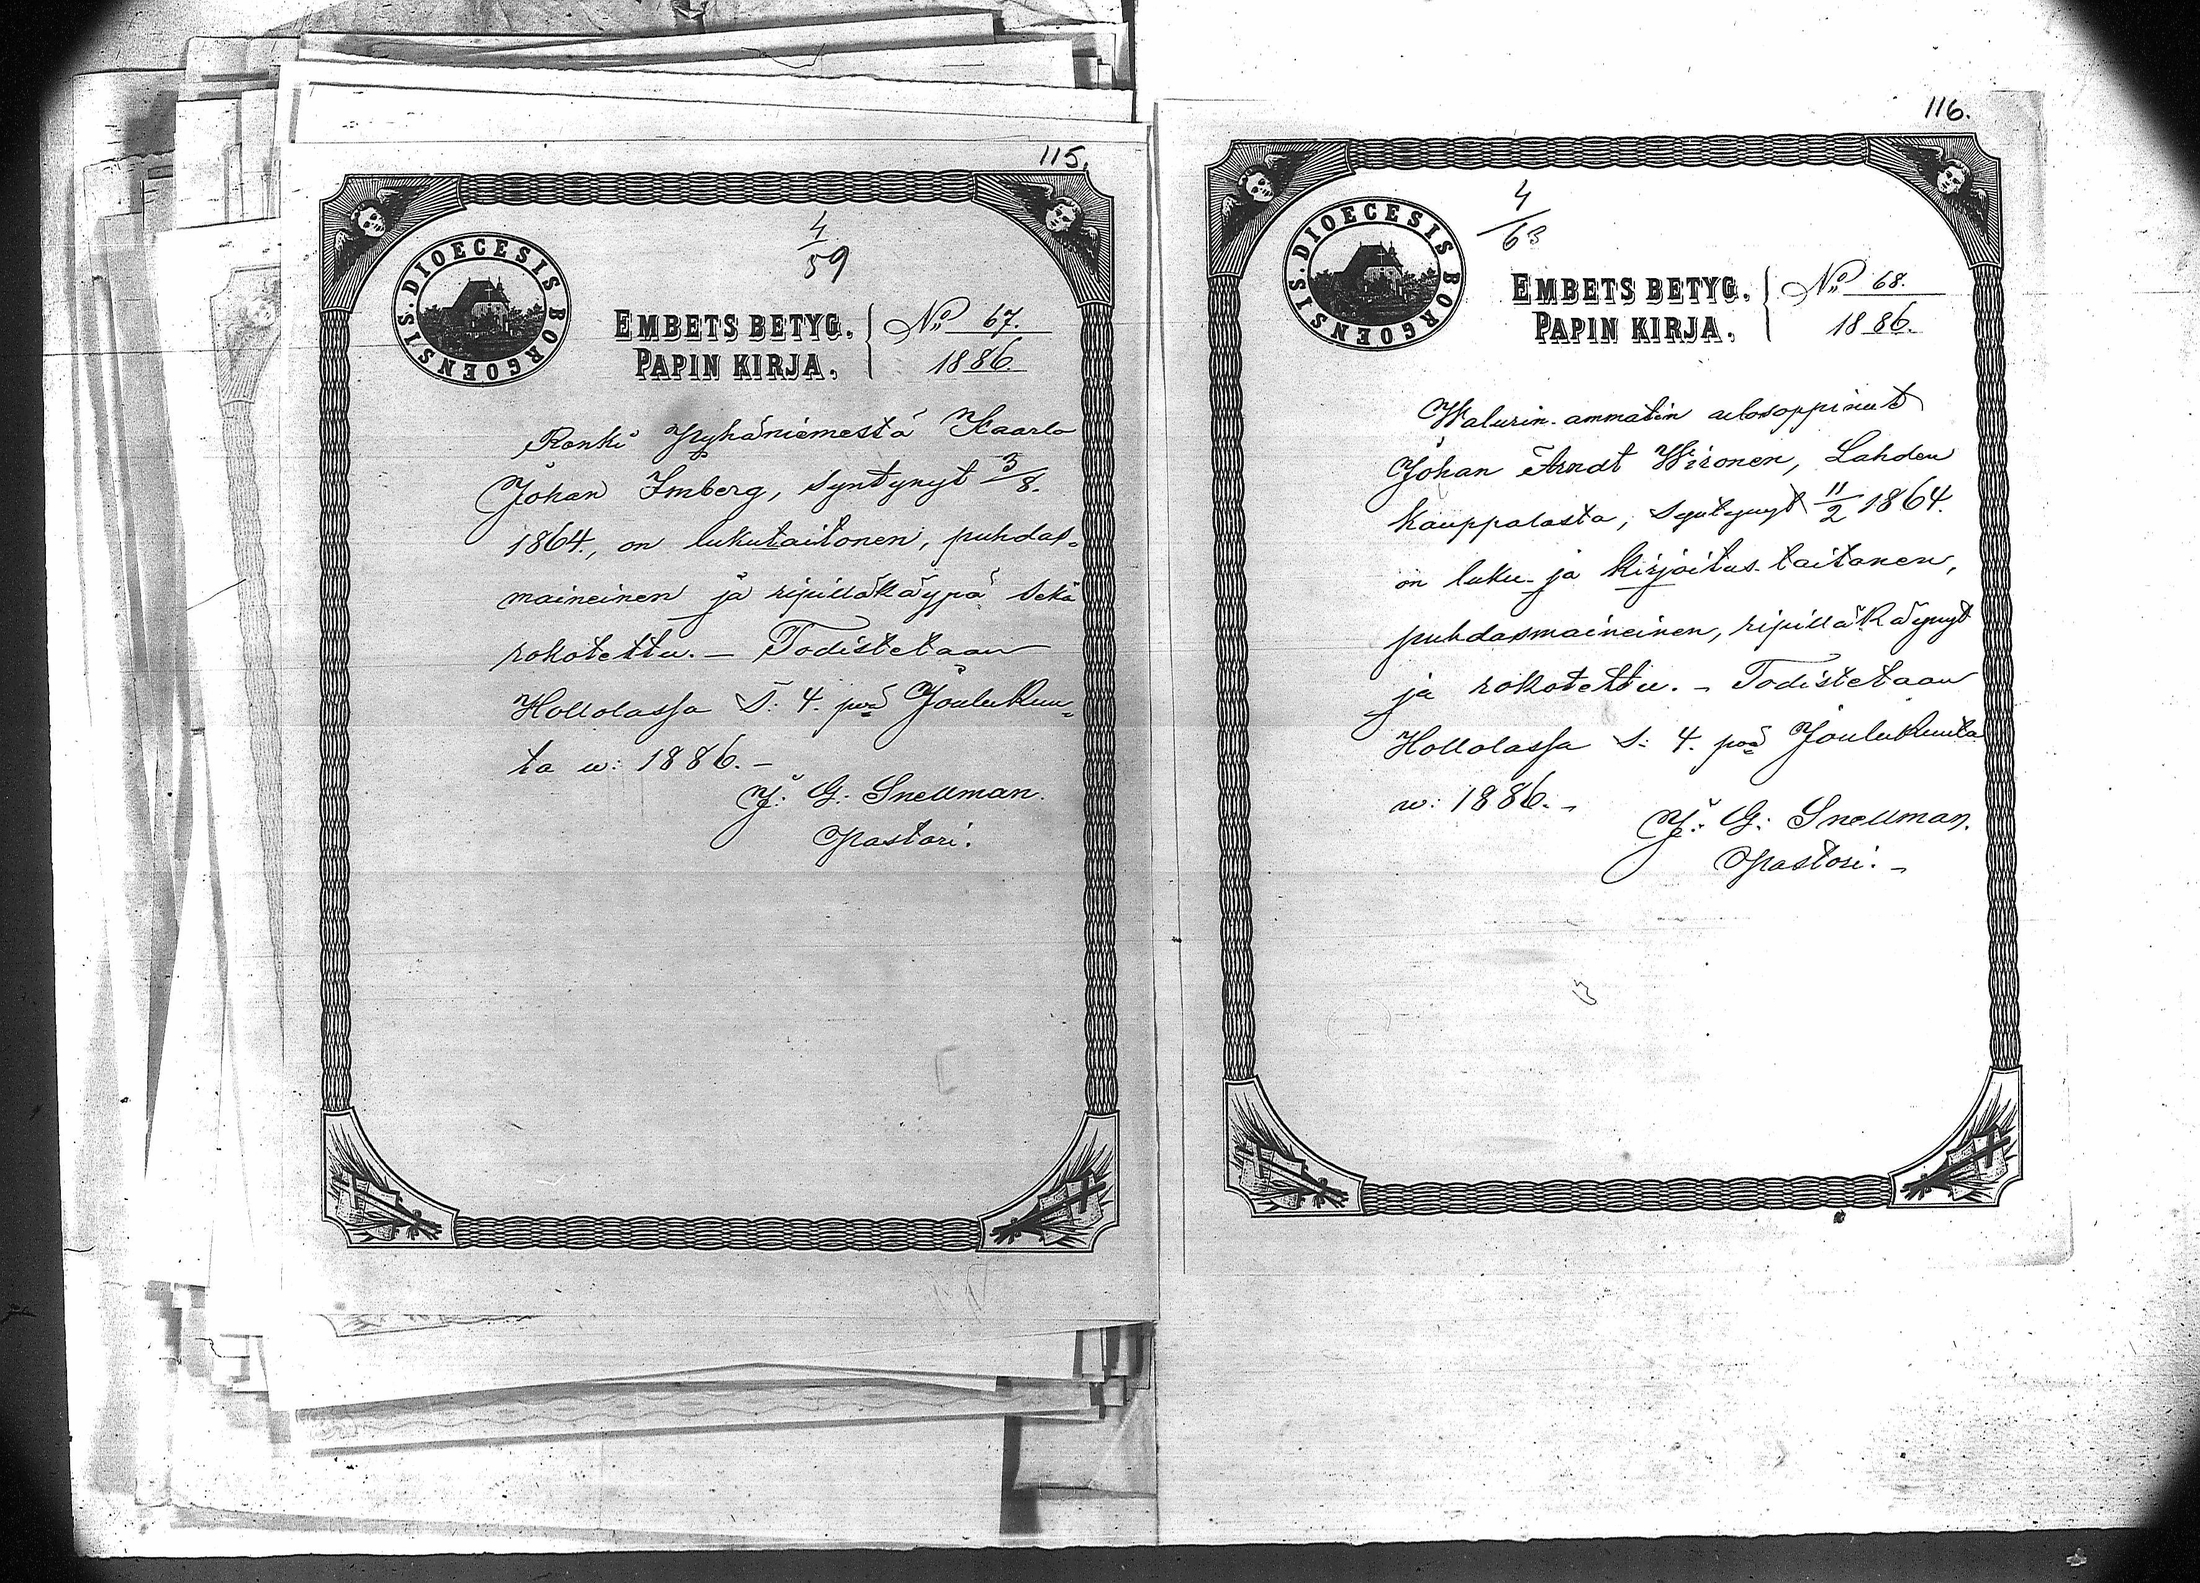 115.
4
59
DIOECESIS BORGOENSIS.
EMBETS BETYG.
PAPIN KIRJA.
No 67.
1886.
Renki Pyhäniemestä Kaarlo
Johan Imberg, syntynyt 3/8.
1864., on lukutaitonen, puhdas-
maineinen ja ripilläkäypä sekä
rokotettu. — Todistetaan
Hollolassa S: 4. pnä Joulukuu-
ta w: 1886. —
J: G: Snellman.
Pastori.
116.
4
63
DIOECESIS BORGOENSIS.
EMBETS BETYG.
PAPIN KIRJA.
No 68.
1886.
Walurin-ammatin ulosoppinut
Johan Arndt Wironen, Lahden
kauppalasta, syntynyt 11/2 1864.
on luku- ja kirjoitus-taitonen,
puhdasmaineinen, ripilläkäynyt
ja rokotettu. — Todistetaan
Hollolassa S: 4. pnä Joulukuuta
w: 1886. —
J: G: Snellman.
Pastori. —